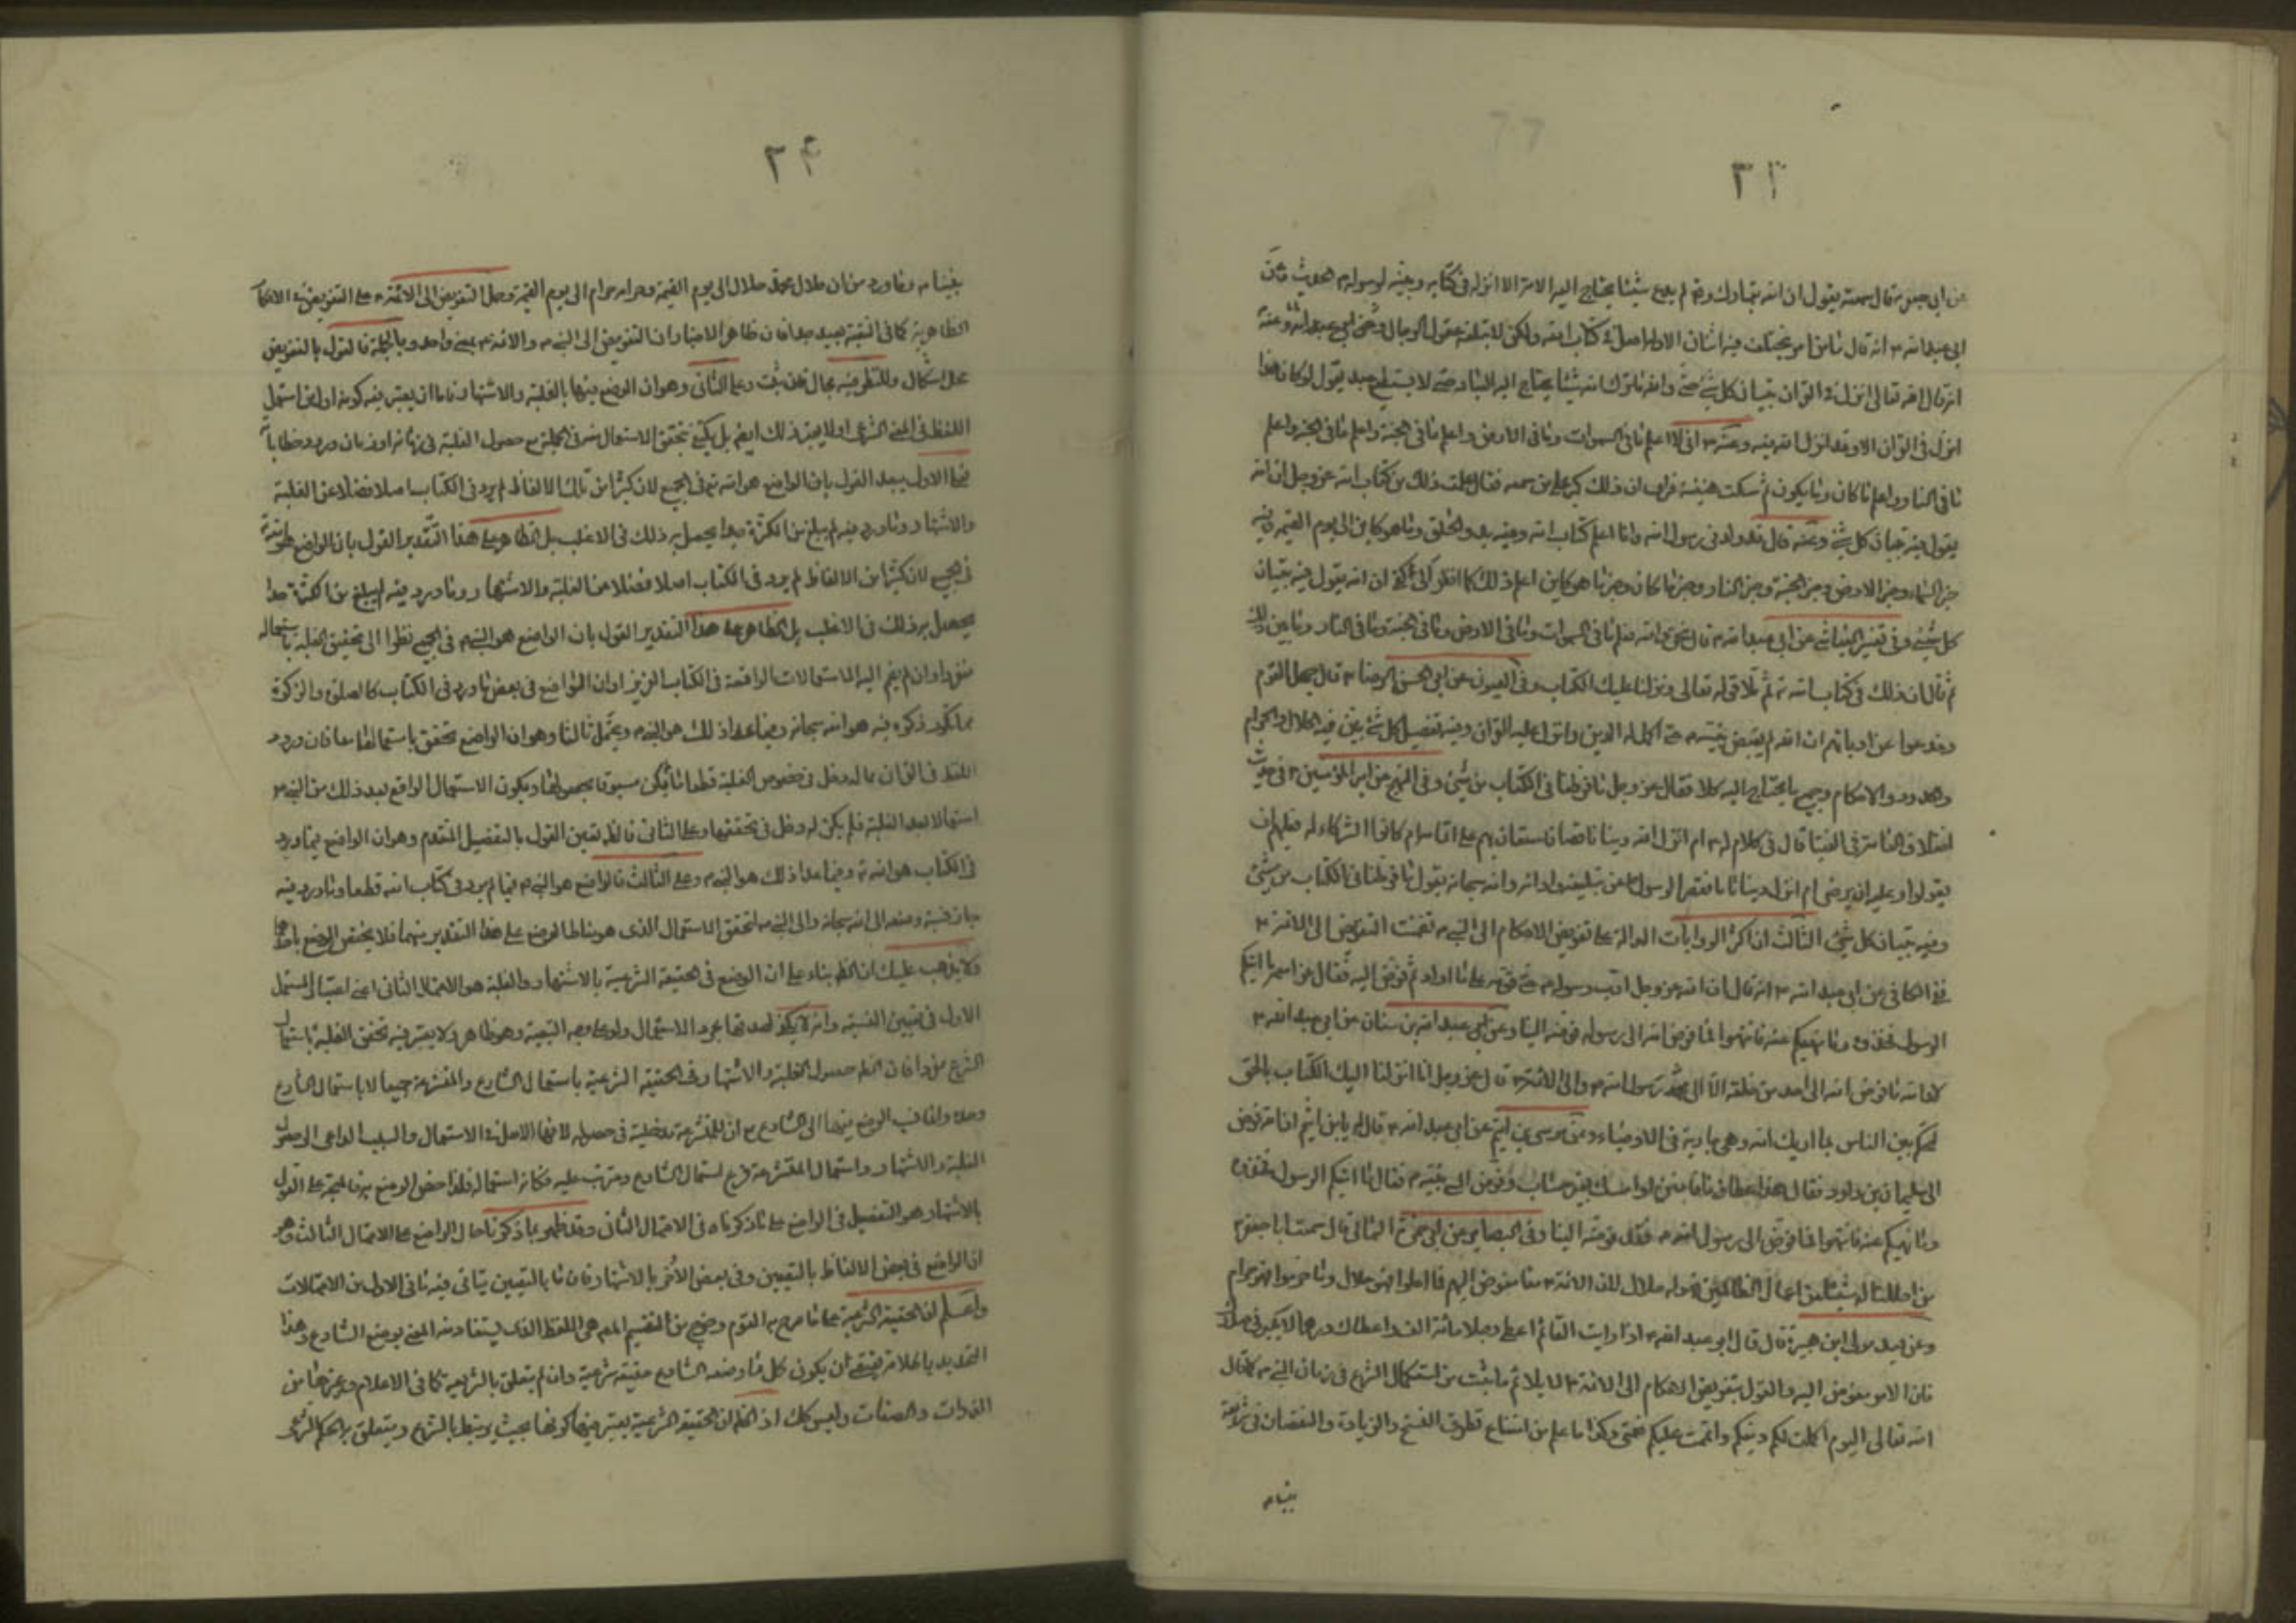 ٣٣
عن ابى جعفر ع قال سمعته يقول ان الله تبارك وتع لم يدع شيئا يحتاج اليه الامة الا انزله فى كتابه وبينه لرسوله الحديث وعن
ابى عبد الله ع انه قال ما من امر يختلف فيه اثنان الا وله اصل فى كتاب الله ولكن لا تبلغه عقول الرجال وعن ابى عبد الله وعنه
انه قال الله تعالى انزل فى القران تبيان كل شئ حتى والله ما ترك الله شيئا يحتاج اليه العباد حتى لا يستطيع عبد يقول لو كان هذا
انزل فى القران الا وقد انزل الله فيه وعنه ع انى لا اعلم ما فى السموات وما فى الارض واعلم ما فى الجنة واعلم ما فى الجنة واعلم
ما فى النار واعلم ما كان وما يكون ثم سكت هنيئة فراى ان ذلك كبر على من سمعه فقال علمت ذلك من كتاب الله عز وجل ان الله
يقول فيه تبيان كل شئ وعنه قال قد ولدنى رسول الله وانا اعلم كتاب الله وفيه بدو الخلق وما هو كاين الى يوم القيمة وفيه
خبر السماء وخبر الارض وخبر الجنة وخبر النار وخبر ما كان وخبر ما هو كاين اعلم ذلك كما انظر الى كفى ان الله يقول فيه تبيان
كل شئ وفى تفسير العياشى عن ابى عبد الله ع قال نحن والله نعلم ما فى السموات وما فى الارض وما فى الجنة وما فى النار وما بين ذلك
ثم قال ان ذلك فى كتاب الله ثم تلا قوله تعالى ونزلنا عليك الكتاب وفى العيون عن ابى الحسن الرضا ع قال جهل القوم
وخدعوا عن اديانهم ان الله لم يقبض نبيه حتى اكمل له الدين وانزل عليه القران وفيه تفصيل كل شئ بين فيه الحلال والحرام
والحدود والاحكام وجميع ما يحتاج اليه كملا فقال عز وجل ما فرطنا فى الكتاب من شئ وفى النهج عن امير المؤمنين ع فى حديث
اختلاف الناس فى الفتيا قال فى كلام له ام انزل الله دينا ناقصا فاستعان بهم على اتمامه ام كانوا الشركاء له فلهم ان
يقولوا وعليه ان يرضى ام انزل دينا تاما فقصر الرسول عن تبليغه وادائه والله سبحانه يقول ما فرطنا فى الكتاب من شئ
وفيه تبيان كل شئ الثالث ان اكثر الروايات الدالة على تفويض الاحكام الى النبى ص تضمنت التفويض الى الائمة ع
ففى الكافى عن ابى عبد الله ع انه قال ان الله عز وجل ادب رسوله حتى قومه على ما اراد ثم فوض اليه فقال عز اسمه ما اتيكم
الرسول فخذوه وما نهيكم عنه فانتهوا فما فوض الله الى رسوله فوضه الينا وعن عبد الله بن سنان عن ابى عبد الله ع
لا والله ما فوض الله الى احد من خلقه الا الى محمد رسول الله ص والى الائمة ع قال عز وجل انا انزلنا اليك الكتاب بالحق
لتحكم بين الناس بما اريك الله وهى جارية فى الاوصياء وعن موسى بن اشيم عن ابى عبد الله ع قال له يا بن اشيم ان الله فوض
الى سليمان بن داود فقال هذا عطاؤنا فامنن او امسك بغير حساب وفوض الى نبيه ص فقال ما اتيكم الرسول فخذوه
وما نهيكم عنه فانتهوا فما فوض الى رسول الله ص فقد فوضه الينا وفى البصاير عن ابى حمزة الثمالى قال سمعت ابا جعفر ع
من احللنا له شيئا من اعمال الظالمين فهو له حلال لان الائمة ع منا مفوض اليهم فما احلوا فهو حلال وما حرموا فهو حرام
وعن مولى ابن هبيرة قال قال ابو عبد الله ع اذا رايت القائم اعطى رجلا مائة الف واعطاك درهما لا يكبر فى صدرك
فان الامر مفوض اليه والقول بتفويض الاحكام الى الائمة ع لا يلائم ما ثبت من استكمال الشرع فى زمان النبى ص كما قال
الله تعالى اليوم اكملت لكم دينكم واتممت عليكم نعمتى وكذا ما علم من امتناع تطرق الفسخ والزيادة والنقصان فى شريعة
نبينا ص
٣٤
نبينا ص وما ورد من ان حلال محمد حلال الى يوم القيمة وحرامه حرام الى يوم القيمة وحمل التفويض الى الائمة ع على التفويض فى الاحكام
الظاهرية كما فى التقية بعيد جدا فان ظاهر الاخبار ان التفويض الى النبى ص والائمة ع بمعنى واحد وبالجملة فالقول بالتفويض
محل اشكال وللنظر فيه مجال وعلى الثانى وهو ان الوضع فيها بالغلبة والاشتهار فاما ان يعتبر فيه كونه اول من استعمل
اللفظ فى المعنى الشرعى اولا يعتبر ذلك ايضا بل يكفى تحقق الاستعمال منه فى الجملة مع حصول الغلبة فى زمانه او زمان ورود خطاباته
فعلى الاول يبعد القول بان الواضع هو الله تع فى الجميع لان كثيرا من تلك الالفاظ لم يرد فى الكتاب اصلا فضلا عن الغلبة
والاشتهار وما ورد فيه لم يبلغ من الكثرة حدا يحصل به ذلك فى الاغلب بل الظاهر على هذا التقدير القول بان الواضع هو الله
فى الجميع لان كثيرا من الالفاظ لم يرد فى الكتاب اصلا فضلا من الغلبة والاشتهار وما ورد فيه لم يبلغ من الكثرة حدا
يحصل به ذلك فى الاغلب بل الظاهر على هذا التقدير القول بان الواضع هو النبى ص فى الجميع نظرا الى تحقيق الغلبة باستعماله
منفردا وان لم يضم اليه الاستعمالات الواقعة فى الكتاب العزيز او ان الواضع فى بعض ما ورد فى الكتاب كالصلوة والزكوة
مما تكرر ذكره فيه هو الله سبحانه وفيما عدا ذلك هو النبى ص ويحتمل ثالثا وهو ان الواضع تحقق باستعمالهما معا فان ورود
اللفظ فى القران مما له دخل فى خصوص الغلبة قطعا ما لم يكن مسبوقا بحصولها ويكون الاستعمال الواقع بعد ذلك من النبى ص
استعمالا بعد الغلبة فلم يكن له دخل فى تحققها وعلى الثانى فالظ تعين القول بالتفصيل المتقدم وهو ان الواضع فيما ورد
فى الكتاب هو الله تع وفيما عدا ذلك هو النبى ص وعلى الثالث فالواضع هو النبى ص فيما لم يرد فى كتاب الله قطعا وما ورد فيه
جاز نسبة وضعه الى الله سبحانه والى النبى ص لتحقق الاستعمال الذى هو مناط الوضع على هذا التقدير منهما فلا يختص الوضع باحدهما
ولا يذهب عليك ان الظ بناء على ان الوضع فى الحقيقة الشرعية بالاشتهار والغلبة هو الاحتمال الثانى اعنى اعتبار المستعمل
الاول فى تعيين النسبة وانه لا يكفى لصدقها مجرد الاستعمال ولو على وجه التبعية وهو ظاهر ولا يعتبر فيه تحقق الغلبة باستعمال
الشرع منفردا فان الظ حصول الغلبة والاشتهار فى الحقيقة الشرعية باستعمال الشارع والمتشرعة جميعا لا باستعمال الشارع
وحده وانما نسب الوضع فيها الى الشارع مع ان للمتشرعة مدخلية فى حصوله لانه الاصل فى الاستعمال والسبب الداعى الى حصول
الغلبة والاشتهار واستعمال المتشرعة فرع استعمال الشارع ومترتب عليه فكانه استعماله فلذا خص الوضع به فالمتجه على القول
بالاشتهار هو التفصيل فى الواضع على ما ذكرناه فى الاحتمال الثانى وقد ظهر بما ذكرنا حال الواضع على الاحتمال الثالث وهو
ان الواضع فى بعض الالفاظ بالتعيين وفى بعض الاخر بالاشتهار فان ما بالتعيين ياتى فيه ما فى الاول من الاحتمالات
واعلم ان الحقيقة الشرعية على ما صرح به القوم وضح من التقسيم المع هى اللفظ الذى يستفاد منه المعنى بوضع الشارع وهذا
التحديد باطلاقه يقتضى ان يكون كل ما وضعه الشارع حقيقة شرعية وان لم يتعلق بالشريعة كما فى الاعلام وغيرها من
الذوات والصفات وليس كك اذ الظ ان الحقيقة الشرعية يعتبر فيها كونها بحيث يرتبط بالشرع ويتعلق به الحكم الشرعى